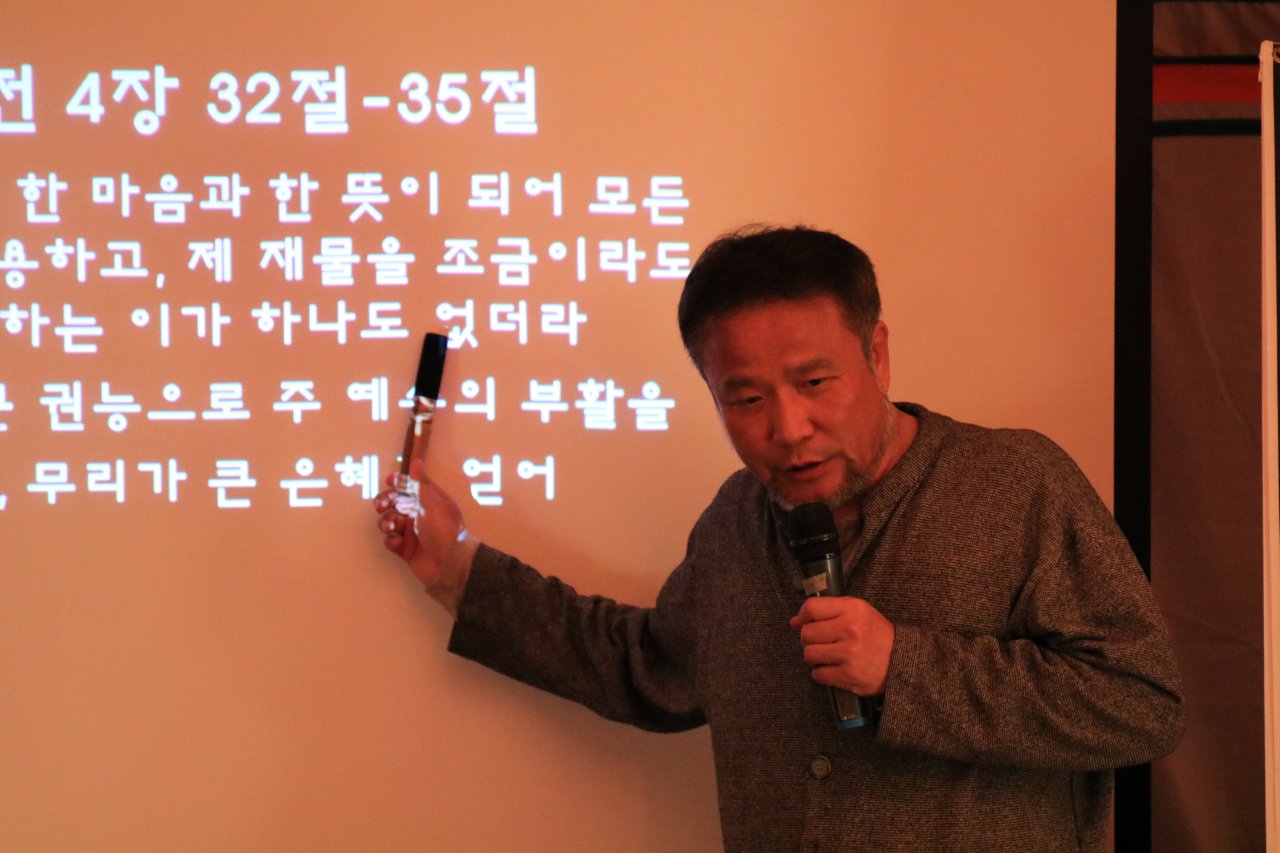 전 4장 32절-35절
한 마음과 한 뜻이 되어 모든
용하고, 제 재물을 조금이라도
하는 이가 하나도 없더라
권능으로 주 예수의 부활을
, 무리가 큰 은혜를 얻어